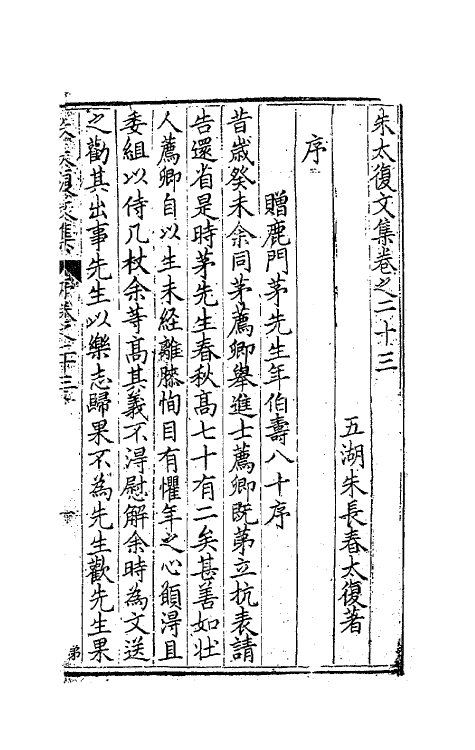 朱太復文集卷之二十三
五湖朱長春太復著
序
贈鹿門茅先生年伯壽八十序
昔歲癸未余同茅薦卿舉進士薦卿既第立抗表請
告還省是時茅先生春秋髙七十有二矣甚善如壮
人薦卿自以生未經離膝恂目有懼年之心願淂且
委組以侍几杖余等髙其義不淂慰解余時為文送
之勸其出事先生以樂志歸果不為先生歡先生果